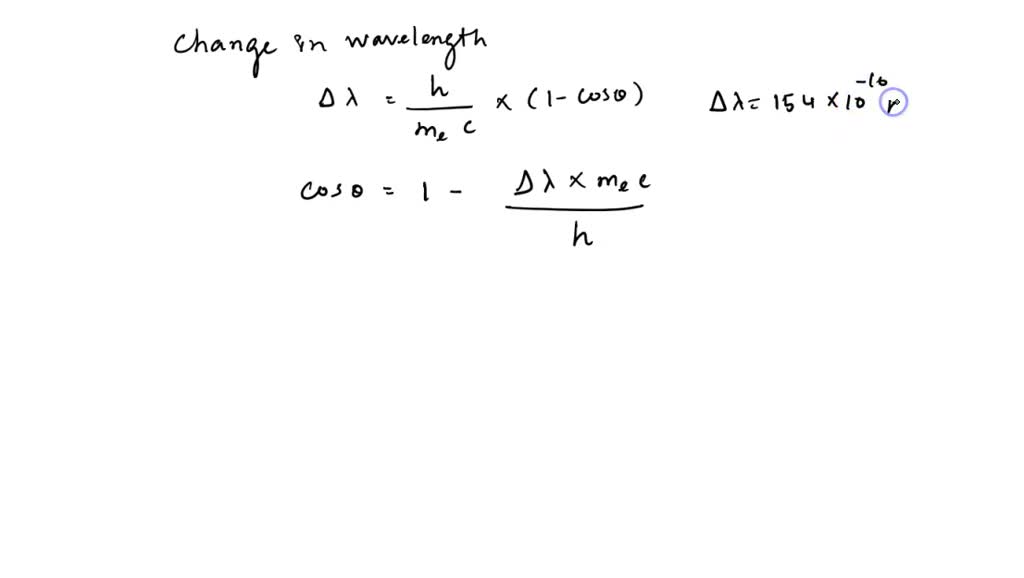 Change in wavelength
Δλ = h / (m_e c) × (1 - cosθ)
Δλ = 154 × 10^-10
cosθ = 1 - (Δλ × m_e c) / h